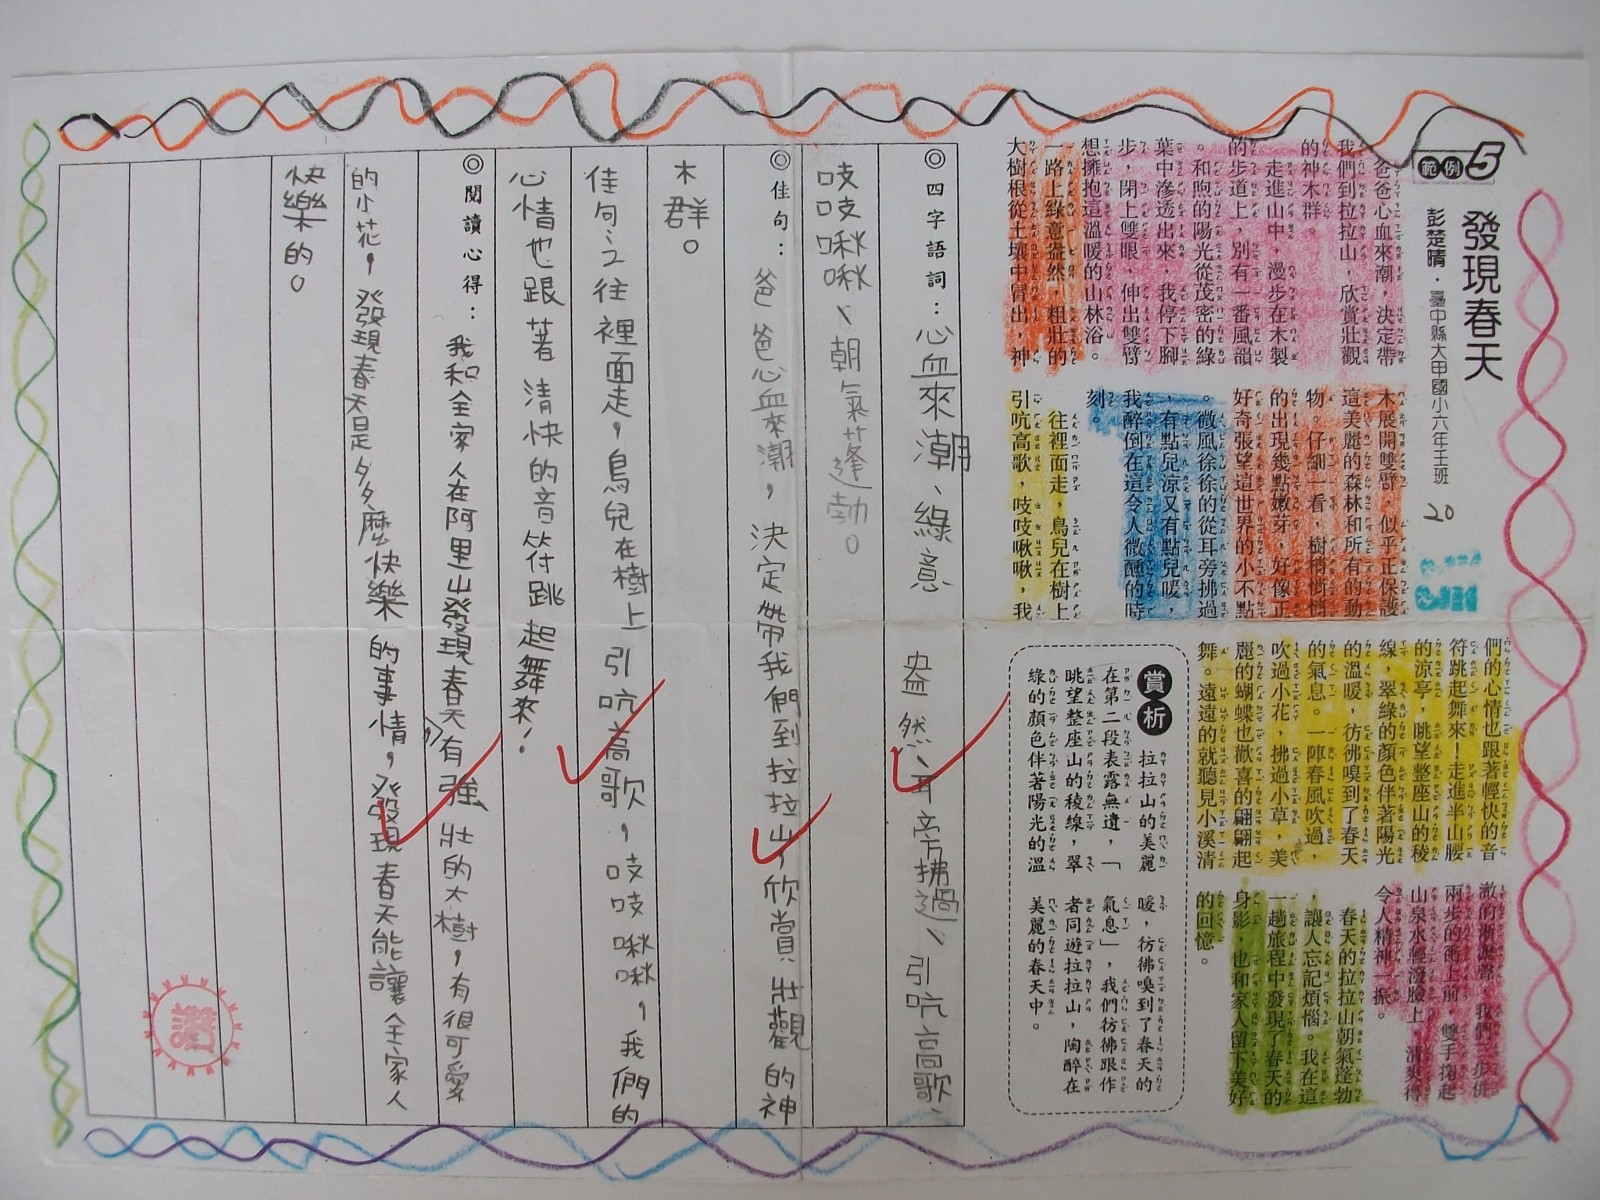 範例5
發現春天
彭楚晴・臺中縣大甲國小六年壬班
20
爸爸心血來潮，決定帶
我們到拉拉山，欣賞壯觀
的神木群。
走進山中，漫步在木製
的步道上，別有一番風韻
。和煦的陽光從茂密的綠
葉中滲透出來，我停下腳
步，閉上雙眼，伸出雙臂
想擁抱這溫暖的山林浴。
一路上綠意盎然，粗壯的
大樹根從土壤中冒出，神
木展開雙臂，似乎正保護
這美麗的森林和所有的動
物。仔細一看，樹梢悄悄
的出現幾點嫩芽，好像正
好奇張望這世界的小不點
。微風徐徐的從耳旁拂過
，有點兒涼又有點兒暖，
我醉倒在這令人微醺的時
刻。
往裡面走，鳥兒在樹上
引吭高歌，吱吱啾啾，我
們的心情也跟著輕快的音
符跳起舞來！走進半山腰
的涼亭，眺望整座山的稜
線，翠綠的顏色伴著陽光
的溫暖，彷彿嗅到了春天
的氣息。一陣春風吹過，
吹過小花，拂過小草，美
麗的蝴蝶也歡喜的翩翩起
舞。遠遠的就聽見小溪清
澈的淅淅聲，我們三步併
兩步的衝上前，雙手掬起
山泉水輕潑臉上，清爽得
令人精神一振。
春天的拉拉山朝氣蓬勃
，讓人忘記煩惱。我在這
一趟旅程中發現了春天的
身影，也和家人留下美好
的回憶。
賞析
拉拉山的美麗
在第二段表露無遺，「
眺望整座山的稜線，翠
綠的顏色伴著陽光的溫
暖，彷彿嗅到了春天的
氣息」，我們彷彿跟作
者同遊拉拉山，陶醉在
美麗的春天中。
◎四字語詞：心血來潮、綠意盎然、耳旁拂過、引吭高歌、
吱吱啾啾、朝氣蓬勃。
◎佳句：爸爸心血來潮，決定帶我們到拉拉山，欣賞壯觀的神
木群。
佳句2往裡面走，鳥兒在樹上引吭高歌，吱吱啾啾，我們的
心情也跟著清快的音符跳起舞來！
◎閱讀心得：我和全家人在阿里山發現春天，有強壯的大樹，有很可愛
的小花，發現春天是多麼快樂的事情，發現春天能讓全家人
快樂的。
讚